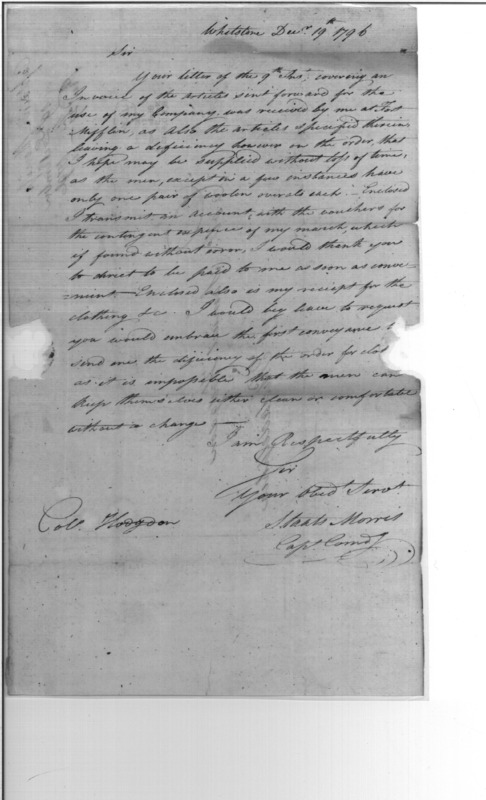 Whitstone Decr. 19th 1796
Sir
Your letter of the 9th Inst. covering an
Invoice of the articles sent forward for the
use of my Company was received by me at Fort
Mifflin, as also the articles specified therein
leaving a deficiency however on the order, that
I hope may be supplied without loss of time,
as the men, except in a few instances have
only one pair of woolen overalls each. Enclosed
I transmit an account, with the vouchers for
the contingent expence of my march, which
if found without error, I would thank you
to direct to be paid to me as soon as conve-
-nient. Enclosed also is my receipt for the
clothing &c. I would beg leave to request
you would embrace the first conveyance to
send me the deficiency of the order for
as it is impossible that the men can
keep themselves either clean or comfortable
without a change
I am Respectfully
Sir
Your Obed Servt.
Staats Morris
Capt. Comdg
Coll. Hodgdon